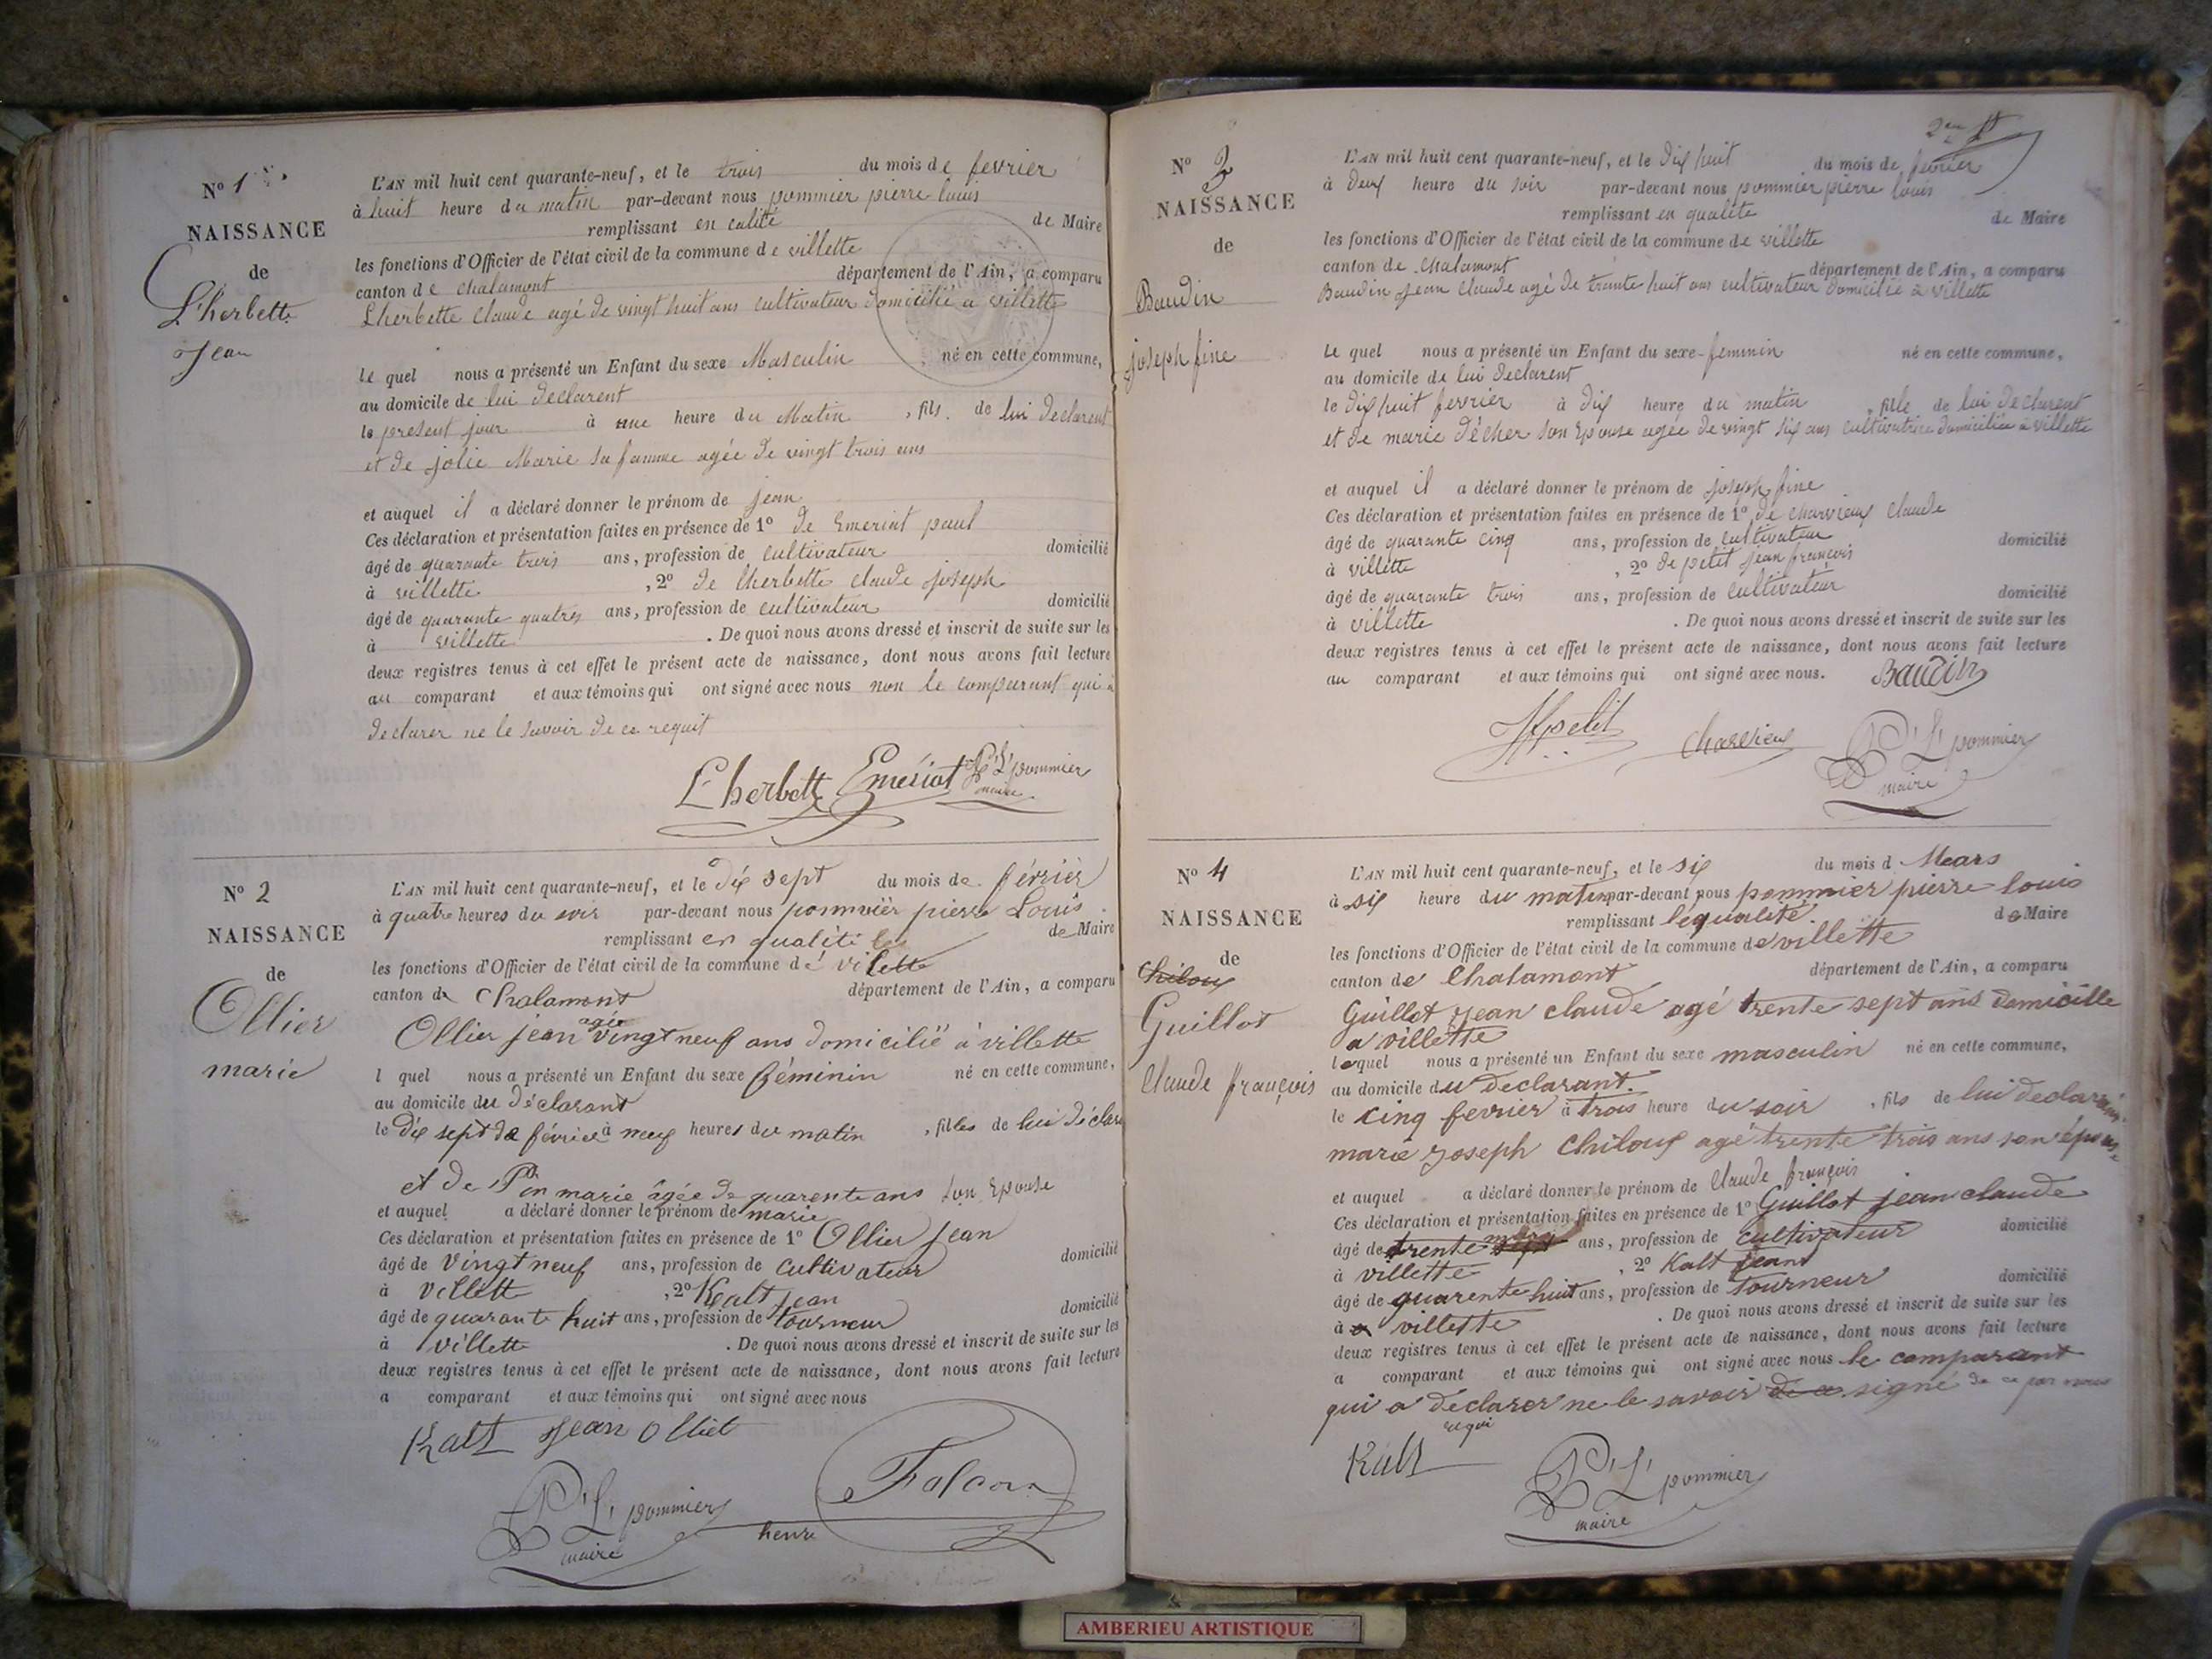 N° 1
NAISSANCE
de
L'herbette
Jean
L'AN mil huit cent quarante-neuf, et le trois du mois de fevrier
à huit heure du matin par-devant nous pommier pierre louis
remplissant en calité de Maire
les fonctions d'Officier de l'état civil de la commune de villette
canton de chalamont département de l'Ain, a comparu
Lherbette Claude agé de vingt huit ans cultivateur domicilié a villette
le quel nous a présenté un Enfant du sexe Masculin , né en cette commune,
au domicile de lui declarent
le présent jour à une heure du Matin , fils de lui declarent
et de jolie Marie sa famme agée de vingt trois ans
et auquel il a déclaré donner le prénom de jean
Ces déclaration et présentation faites en présence de 1° de Emeriat paul
âgé de quarante trois ans, profession de cultivateur domicilié
à villette , 2° de Lherbette claude joseph
âgé de quarante quatres ans, profession de cultivateur domicilié
à villette . De quoi nous avons dressé et inscrit de suite sur les
deux registres tenus à cet effet le présent acte de naissance, dont nous avons fait lecture
au comparant et aux témoins qui ont signé avec nous non le comparant qui a
declarer ne le savoir de ce requit
L'herbette Emériat P. L. pommier
maire
N° 2
NAISSANCE
de
Ollier
marie
L'AN mil huit cent quarante-neuf, et le dix sept du mois de février
à quatre heures du soir par-devant nous pommier pierre Louis
remplissant en qualité de Maire
les fonctions d'Officier de l'état civil de la commune de vilette
canton de Chalamont département de l'Ain, a comparu
agée
Ollier jean vingt neuf ans domicilié à villette
l quel nous a présenté un Enfant du sexe féminin né en cette commune,
au domicile du déclarant
le dix sept de février à neuf heures du matin , filles de lui déclare
et de Pin marie âgée de quarente ans son Epouse
et auquel a déclaré donner le prénom de marie
Ces déclaration et présentation faites en présence de 1° Ollier jean
âgé de vingt neuf ans, profession de cultivateur domicilié
à villett , 2° Kalt jean
âgé de quarante huit ans, profession de tourneur domicilié
à villett . De quoi nous avons dressé et inscrit de suite sur les
deux registres tenus à cet effet le présent acte de naissance, dont nous avons fait lecture
a comparant et aux témoins qui ont signé avec nous
Kalt Jean Olliet
P. L. pommier
maire
henri Falcon
2
N° 3
NAISSANCE
de
Baudin
joseph fine
L'AN mil huit cent quarante-neuf, et le dix huit du mois de fevrier
à deux heure du soir par-devant nous pommier pierre louis
remplissant en qualite de Maire
les fonctions d'Officier de l'état civil de la commune de villette
canton de Chalamont département de l'Ain, a comparu
Baudin Jean Claude agé de trante huit ans cultivateur domicilié a villette
le quel nous a présenté un Enfant du sexe feminin né en cette commune,
au domicile de lui declarent
le dix huit fevrier à dix heure du matin , fille de lui declarent
et de marie décher son Epouse agée de vingt six ans cultivatrice domiciliée a villette
et auquel il a déclaré donner le prénom de joseph fine
Ces déclaration et présentation faites en présence de 1° de charvieux Claude
âgé de quarante cinq ans, profession de cultivateur domicilié
à villette , 2° de petit Jean françois
âgé de quarante trois ans, profession de cultivateur domicilié
à villette . De quoi nous avons dressé et inscrit de suite sur les
deux registres tenus à cet effet le présent acte de naissance, dont nous avons fait lecture
au comparant et aux témoins qui ont signé avec nous. Baudin
petit charvieux P. L. pommier
maire
N° 4
NAISSANCE
de
Chiloux
Guillot
Claude françois
L'AN mil huit cent quarante-neuf, et le six du mois d Mars
à six heure du matin par-devant nous pommier pierre louis
remplissant lequalité de Maire
les fonctions d'Officier de l'état civil de la commune de villette
canton de Chalamont département de l'Ain, a comparu
Guillot jean claude agé trente sept ans domicille
a villette
lequel nous a présenté un Enfant du sexe masculin né en cette commune,
au domicile du declarant.
le cinq fevrier à trois heure du soir , fils de lui declarant
marie Joseph Chiloux agé trente trois ans son épouse
et auquel a déclaré donner le prénom de Claude françois
Ces déclaration et présentation faites en présence de 1° Guillot jean claude
âgé de trente sept ans, profession de cultivateur domicilié
à villette , 2° Kalt jean
âgé de quarente huit ans, profession de tourneur domicilié
à a villette . De quoi nous avons dressé et inscrit de suite sur les
deux registres tenus à cet effet le présent acte de naissance, dont nous avons fait lecture
a comparant et aux témoins qui ont signé avec nous le comparant
qui a declarer ne le savoir de ce signé de ce par nous
requi
Kalt
P. L. pommier
maire
AMBERIEU ARTISTIQUE